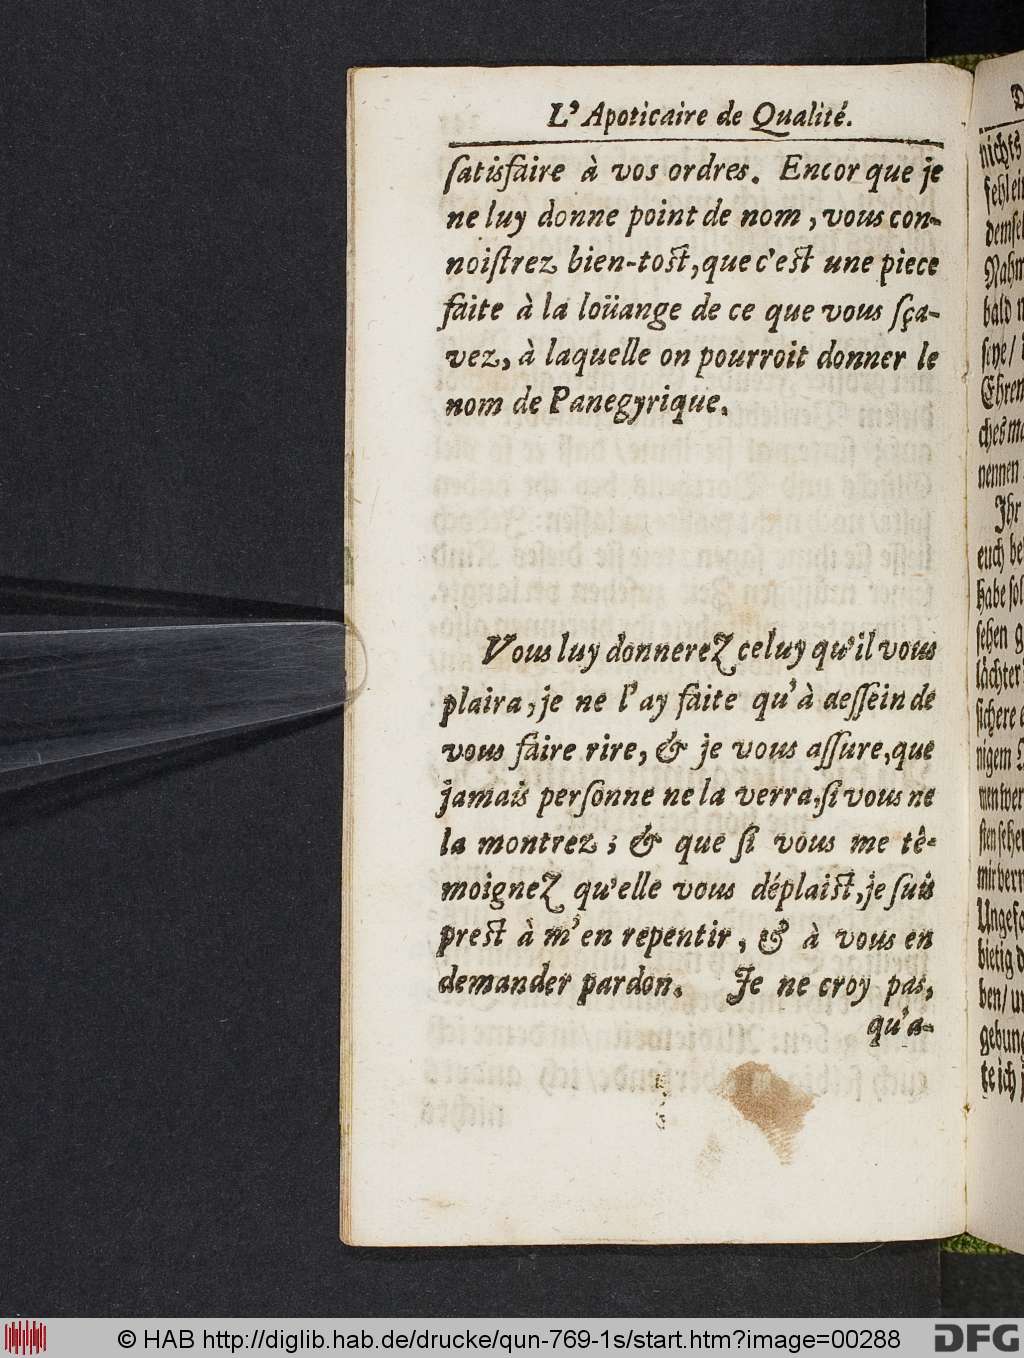 L'Apoticaire de Qualité.
ſatisfaire à vos ordres. Encor que je
ne luy donne point de nom, vous con-
noiſtrez bien-toſt, que c'eſt une piece
faite à la loüange de ce que vous ſça-
vez, à laquelle on pourroit donner le
nom de Panegyrique.
Vous luy donnerez celuy qu'il vous
plaira, je ne l'ay faite qu'à deſſein de
vous faire rire, & je vous aſſure, que
jamais perſonne ne la verra, ſi vous ne
la montrez; & que ſi vous me tê-
moignez qu'elle vous déplaiſt, je ſuis
preſt à m'en repentir, & à vous en
demander pardon. Je ne croy pas,
qu'a-
nichts
fehl
Nahm
bald
Ehren
nennen
Ihr
euch
habe
ſehen
ſichere
nigem
gebung
te ich
© HAB http://diglib.hab.de/drucke/qun-769-1s/start.htm?image=00288
DFG